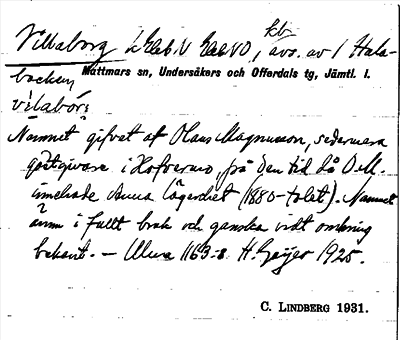 Villaborg kb., avs. av 1 Hala-
backen, Mattmars sn, Undersåkers och Offerdals tg, Jämtl. l.
vilabór:
Namnet gifvet af Olaus Magnusson, sedermera
gästgivare i Hofverno, på den tid då O.M.
innehade denna lägenhet (1880-talet). Namnet
ännu i fullt bruk och ganska vidt omkring
bekant. – Ulma 1163:8. H. Geijer 1925.
C. LINDBERG 1931.